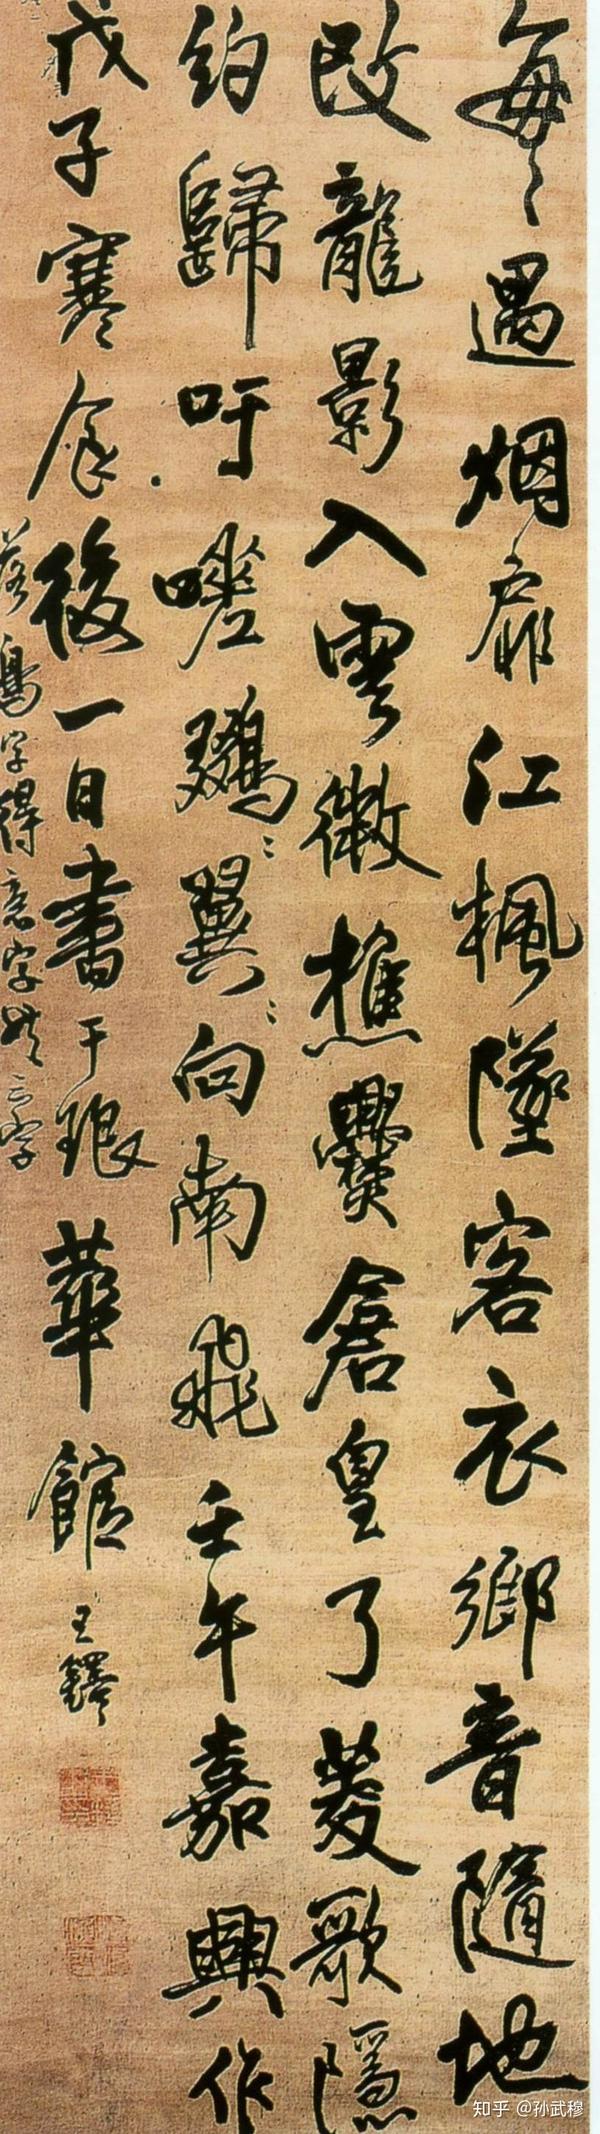 每〻遇烟扉江楓墜客衣鄉音隨地
改龍影入雲微樵爨倉皇了菱歌隱
約歸吁嗟翼〻向南飛壬午嘉興作
戊子寒食後一日書于琅華館王鐸
落鳥字得意字共三字
知乎 @孙武穆